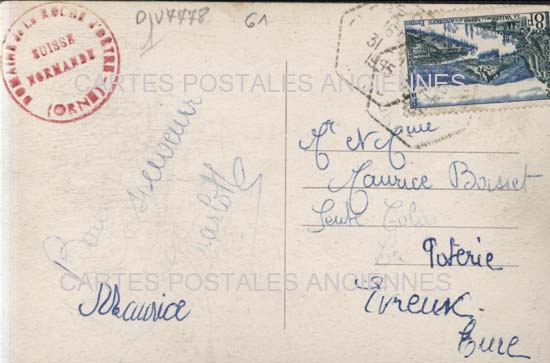 DJV4478
61
DOMAINE DE LA ROCHE D'ORTRE
SUISSE
NORMANDE
(ORNE)
CARTES POSTALES ANCIENNES
Bon souvenir
Maurice
Mr et Mme
Maurice Boisset
La
Poterie
Evreux
Eure
CARTES POSTALES ANCIENNES